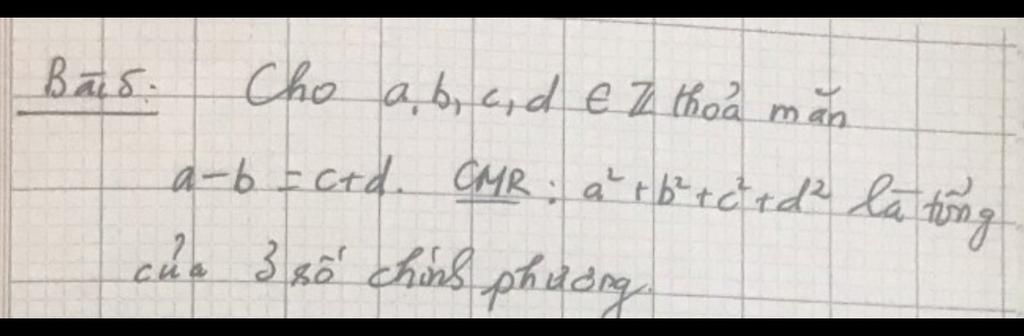 Bài 5: Cho a, b, c, d ∈ Z thoả mãn
a-b = c+d. CMR: a² + b² + c² + d² là tổng
của 3 số chính phương.